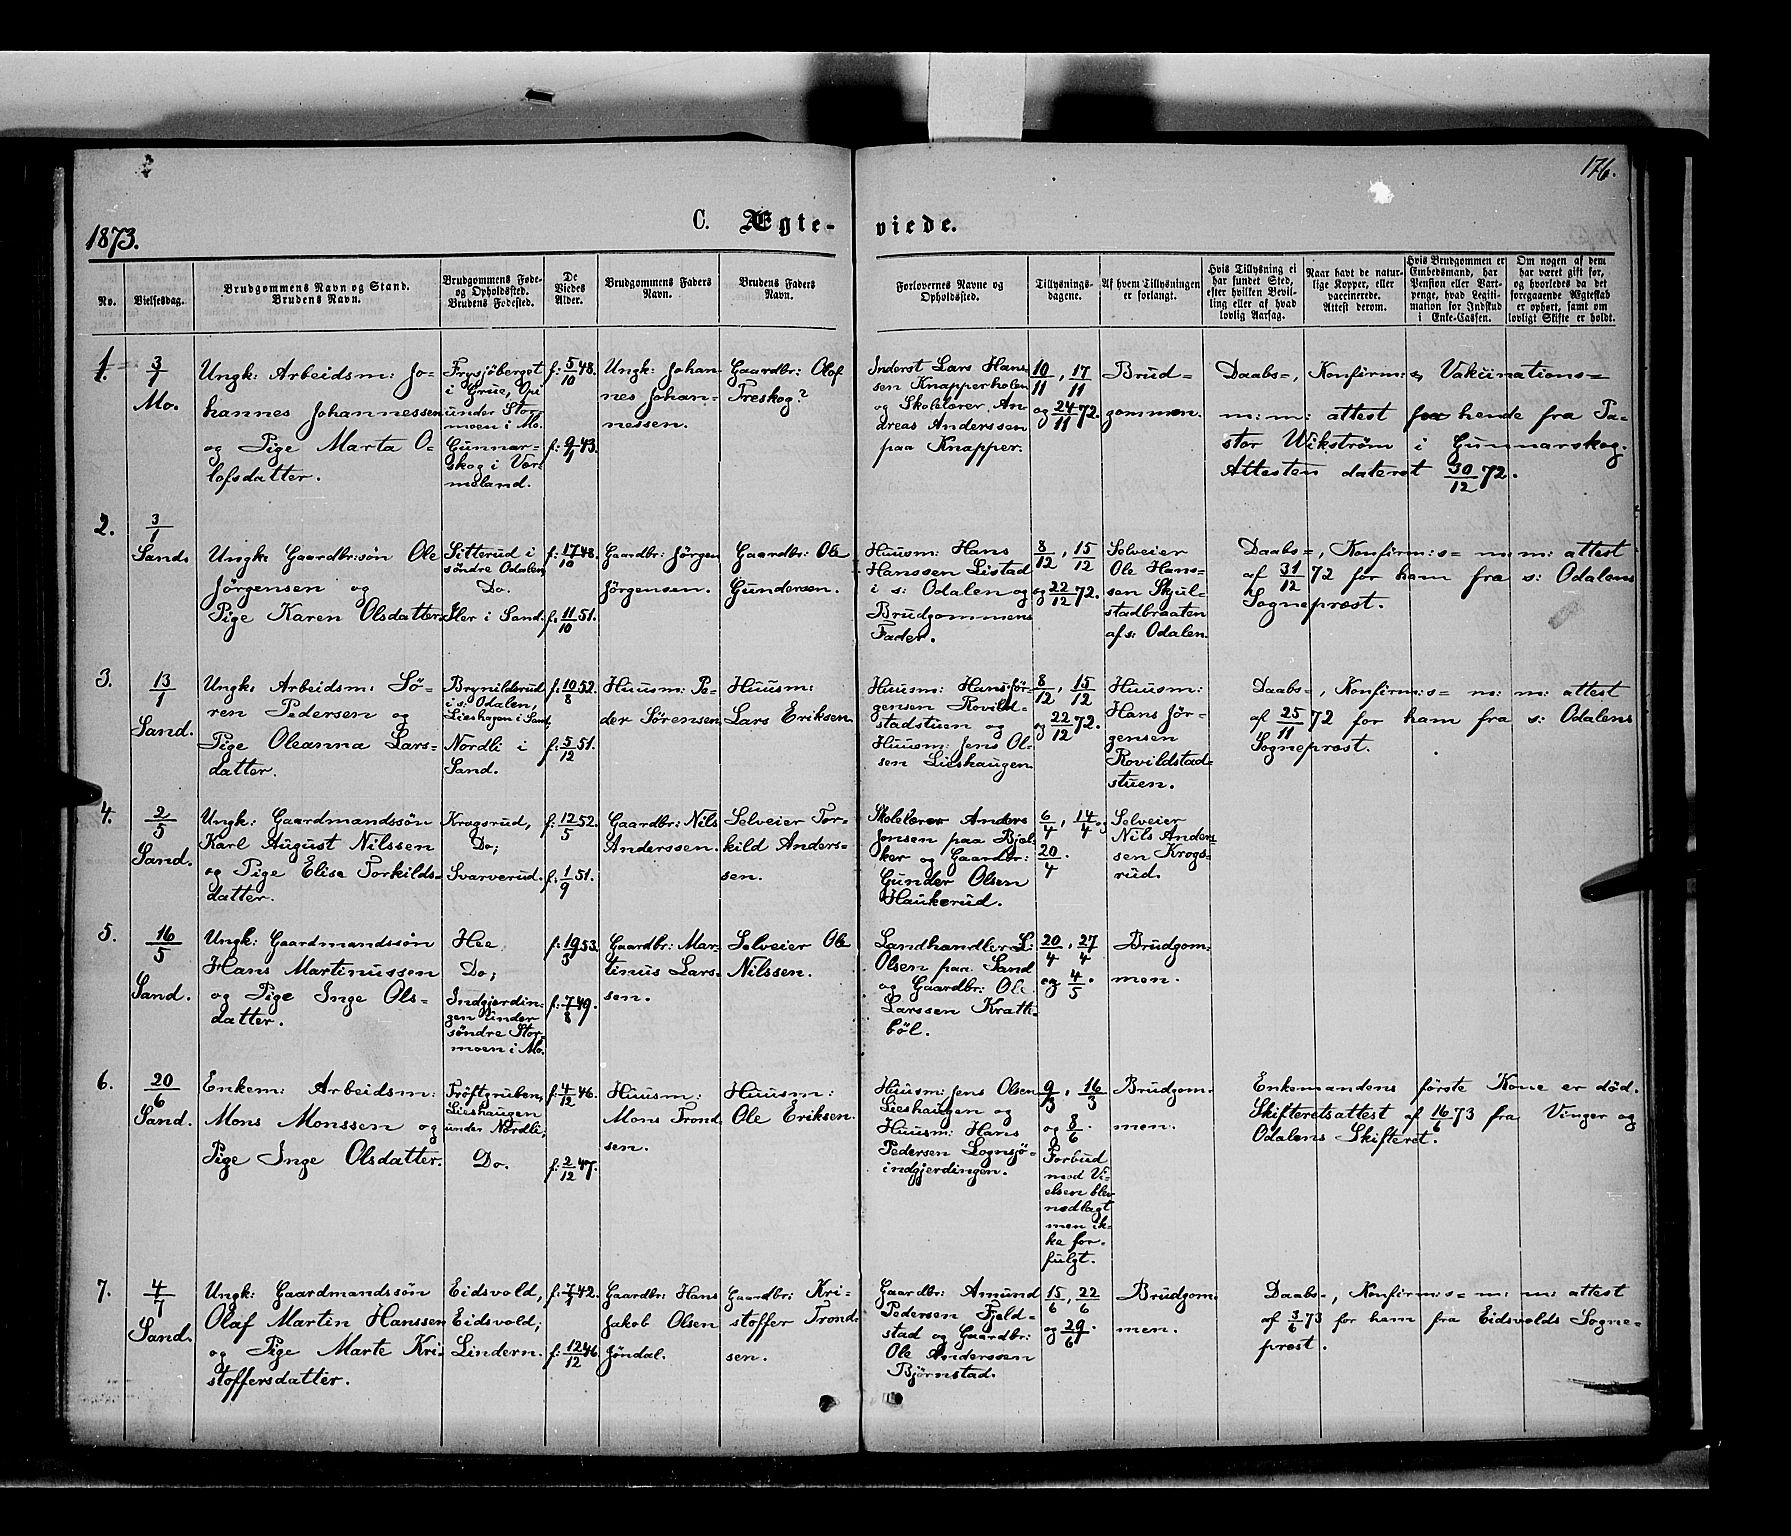 176.
C. Ægte- viede.
1873.
No.
Vielsesdag.
Brudgommens Navn og Stand.
Brudens Navn.
Brudgommens Føde-
og Opholdssted.
Brudens Fødested.
De
Viedes
Alder.
Brudgommens Faders
Navn.
Brudens Faders
Navn.
Forlovernes Navne og
Opholdssted.
Tillysnings-
dagene.
Af hvem Tillysningen
er forlangt.
Hvis Tillysning ei
har fundet Sted,
efter hvilken Bevil-
ling eller af hvad
lovlig Aarsag.
Naar havt de natur-
lige Kopper, eller
vaccinerede.
Attest derom.
Hvis Brudgommen er
Embedsmand, har
Pension eller Vart-
penge, hvad Legiti-
mation for Indskud
i Enke-Cassen.
Om nogen af dem
har været gift før,
og hvorledes da det
foregaaende Ægteskab
er ophørt, samt om
lovligt Skifte er holdt.
1.
3/1
Mo.
Ungk: Arbeidsm: Jo-
hannes Johannessen
og Pige Marta O-
lofsdatter.
Frysjøberget
i Grue, Opi
under Stor-
moen i Mo.
Gunnar-
skog i Ver-
meland.
f: 5/10 48.
f: 9/1 43.
Ungk: Johan-
nes Johan-
nessen.
Gaardbr: Olof
Treskog?
Inderst Lars Hans-
sen Knapperholen
og Skolelærer An-
dreas Anderssen
paa Knapper.
10/11, 17/11
og 24/11 72.
Brud-
gommen.
Daabs-, Konfirm:s, Vakcinations-
m: m: attest for hende fra Pa-
stor Wikström i Gunnarskog.
Attesten dateret 30/12 72.
2.
3/1
Sand.
Ungk: Gaardbr:søn Ole
Jørgensen og
Pige Karen Olsdatter.
Sitterud i
søndre Odalen,
Do.
Iler i Sand.
f: 17/10 48.
f. 11/10 51.
Gaardbr: Jørgen
Jørgensen.
Gaardbr: Ole
Gundersen.
Huusm: Hans
Hanssen Listad
i s: Odalen og
Brudgommens
Fader.
8/12, 15/12
og 22/12 72.
Selveier
Ole Hans-
sen Skjul-
stadbraaten
af s: Odalen.
Daabs-, Konfirm:s- m: m: attest
af 31/12 72 for ham fra s: Odalens
Sogneprest.
3.
13/1
Sand.
Ungk: Arbeidsm: Sø-
ren Pedersen og
Pige Oleanna Lars-
datter.
Brynildsrud
i s: Odalen,
Lieshagen i Sand,
Nordli i
Sand.
f: 10/8 52.
f: 5/12 51.
Huusm: Pe-
der Sørensen.
Huusm:
Lars Eriksen.
Huusm: Hans Jør-
gensen Rovild-
stadstuen og
Huusm: Jens Ol-
sen Lieshaugen
8/12, 15/12
og 22/12 72.
Huusm:
Hans Jør-
gensen
Rovildstad-
stuen.
Daabs-, Konfirm:s- m: m: attest
af 25/11 72 for ham fra s: Odalens
Sogneprest.
4.
2/5
Sand.
Ungk: Gaardmandssøn
Karl August Nilssen
og Pige Elise Torkilds-
datter.
Krogsrud,
Do;
Svarverud.
f: 12/5 52.
f: 1/9 51.
Gaardbr: Nils
Anderssen.
Selveier Tor-
kild Anders-
sen.
Skolelærer Anders
Jonsen paa Bjel-
ker og Gaardbr:
Gunder Olsen
Haukerud.
6/4, 14/4 og
20/4.
Selveier
Nils Anders-
sen Krogs-
rud.
5.
16/5
Sand.
Ungk: Gaardmandssøn
Hans Martinussen
og Pige Inge Ols-
datter.
Hee
Do;
Indgjerdin-
gen under
søndre Stor-
moen i Mo.
f: 19/5 53.
f: 7/8 49.
Gaardbr: Mar-
tinus Lars-
sen.
Selveier Ole
Nilssen.
Landhandler L:
Olsen paa Sand
og Gaardbr: Ole
Larssen Kratte-
böl.
20/4, 27/4
og 4/5.
Brudgom-
men.
6.
20/6
Sand.
Enkem: Arbeidsm:
Mons Monssen og
Pige Inge Olsdatter.
Trøftgruben,
Lieshaugen
under Nordli;
Do.
f: 4/12 46.
f: 2/12 47.
Huusm:
Mons Trond-
sen.
Huusm:
Ole Eriksen.
Huusm: Jens Olsen
Lieshaugen og
Huusm: Hans
Pedersen Sognsjø-
indgjerdingen.
9/3, 16/3
og 8/6.
Forbud
mod Vi-
elsen blev
nedlagt
men ik-
ke for-
fulgt.
Brudgom-
men.
Enkemandens første Kone er död.
Skifteretsattest af 16/6 73 fra Vinger og
Odalens Skifteret.
7.
4/7
Sand.
Ungk: Gaardmandssøn
Olaf Martin Hanssen
og Pige Marte Kri-
stoffersdatter.
Eidsvold,
Eidsvold;
Lindern.
f: 7/7 42.
f: 12/12 46.
Gaardbr: Hans
Jakob Olsen
Jøndal.
Gaardbr: Kri-
stoffer Trond-
sen.
Gaardbr: Amund
Pedersen Fjeld-
stad og Gaardbr:
Ole Anderssen
Bjørnstad.
15/6, 22/6
og 29/6.
Brudgom-
men.
Daabs-, Konfirm:s- m: m: attest
af 3/6 73 for ham fra Eidsvolds Sogne-
prest.